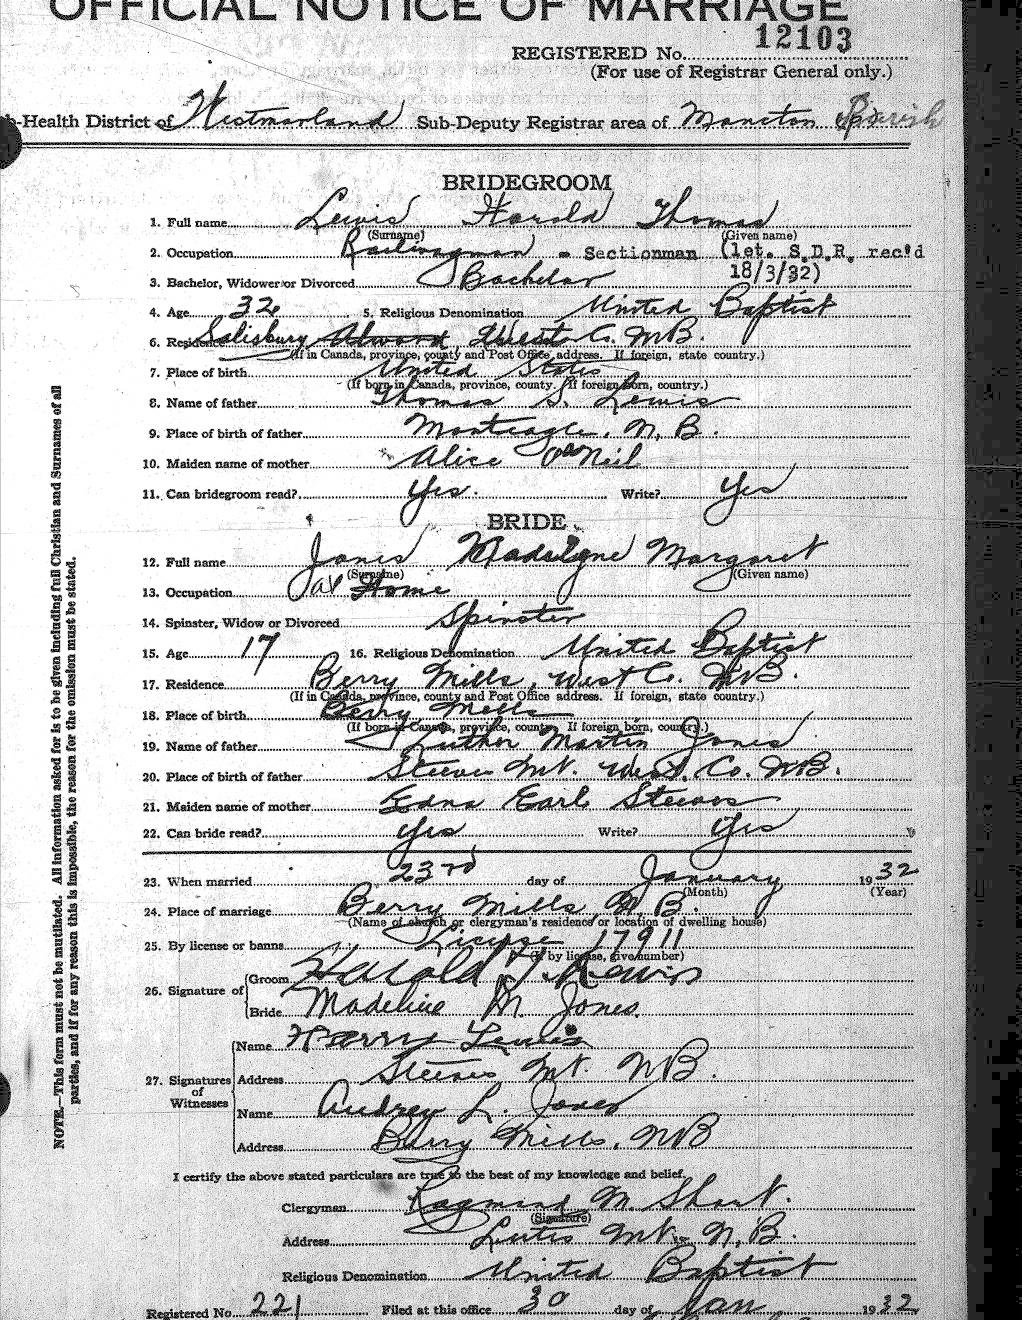 OFFICIAL NOTICE OF MARRIAGE
REGISTERED No. 12103
(For use of Registrar General only.)
b-Health District of Westmorland Sub-Deputy Registrar area of Moncton Parish
BRIDEGROOM
1. Full name Lewis Harold Thomas
(Surname) (Given name)
2. Occupation Railwayman - Sectionman (let. S.D.R. rec'd
18/3/32)
3. Bachelor, Widower or Divorced Bachelor
4. Age 32 5. Religious Denomination United Baptist
6. Residence Salisbury West Co. N.B.
(If in Canada, province, county and Post Office address. If foreign, state country.)
7. Place of birth United States
(If born in Canada, province, county. If foreign born, country.)
8. Name of father Thomas S. Lewis
9. Place of birth of father Monteagle, N.B.
10. Maiden name of mother Alice O'Neil
11. Can bridegroom read? Yes. Write? Yes
BRIDE
12. Full name Jones Madelyne Margaret
(Surname) (Given name)
13. Occupation At Home
14. Spinster, Widow or Divorced Spinster
15. Age 17 16. Religious Denomination United Baptist
17. Residence Berry Mills, West Co. N.B.
(If in Canada, province, county and Post Office address. If foreign, state country.)
18. Place of birth Berry Mills
(If born in Canada, province, county. If foreign born, country.)
19. Name of father Luther Martin Jones
20. Place of birth of father Steeves Mt. West. Co. N.B.
21. Maiden name of mother Edna Earl Steeves
22. Can bride read? Yes Write? Yes
23. When married 23rd day of January 1932
(Month) (Year)
24. Place of marriage Berry Mills, N.B.
(Name of church or clergyman's residence or location of dwelling house)
25. By license or banns License 17911
(If by license, give number)
26. Signature of Groom Harold T. Lewis
Bride Madeline M. Jones.
27. Signatures of Witnesses
Name Harry Lewis
Address Steeves Mt. N.B.
Name Audrey L. Jones
Address Berry Mills, N.B
I certify the above stated particulars are true to the best of my knowledge and belief.
Clergyman Raymond M. Short.
(Signature)
Address Lutes Mt. N.B.
Religious Denomination United Baptist
Registered No. 221 Filed at this office 30 day of Jan 1932
NOTE.—This form must not be mutilated. All information asked for is to be given including full Christian and Surnames of all
parties, and if for any reason this is impossible, the reason for the omission must be stated.